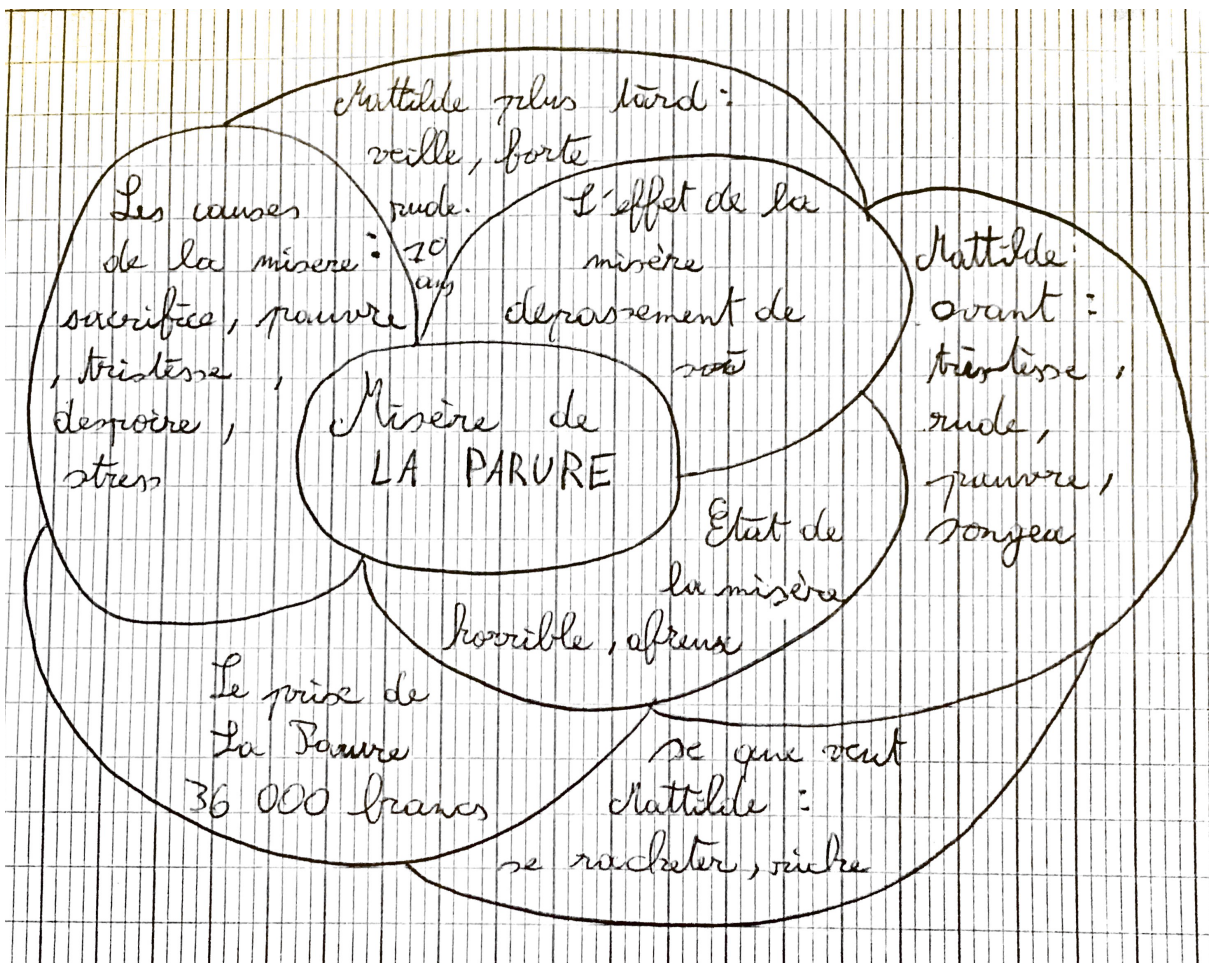 Mattilde plus tard :
veille, forte
rude.
10
ans
Les causes
de la misere :
sacrifice, pauvre
, tristesse ,
despoire ,
stress
L'effet de la
misère
depassement de
soi
Mattilde :
avant :
tristesse ,
rude,
pauvre ,
songea
Misère de
LA PARURE
Etat de
la misère
horrible , afreux
Le prix de
La Parure
36 000 francs
se que veut
Mattilde :
se racheter, riche